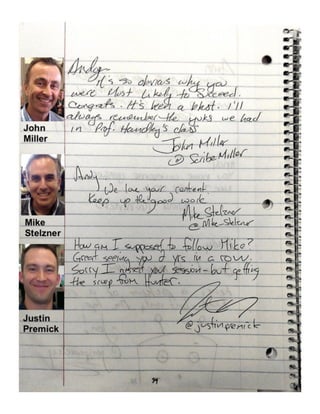 Andy,
It's so obvious why you
were Most Likely to Succeed.
Congrats. It's been a blast. I'll
always remember the yuks we had
in Prof. Handley's class
John Miller
@ScribeMiller
John
Miller
Andy,
We love your content
Keep up the good work
Mike Stelzner
@Mike-Stelzner
Mike
Stelzner
How am I supposed to follow Mike?
Great seeing you 2 yrs in a row.
Sorry I missed your session - but getting
the scoop from Hunter.
@justinpremick
Justin
Premick